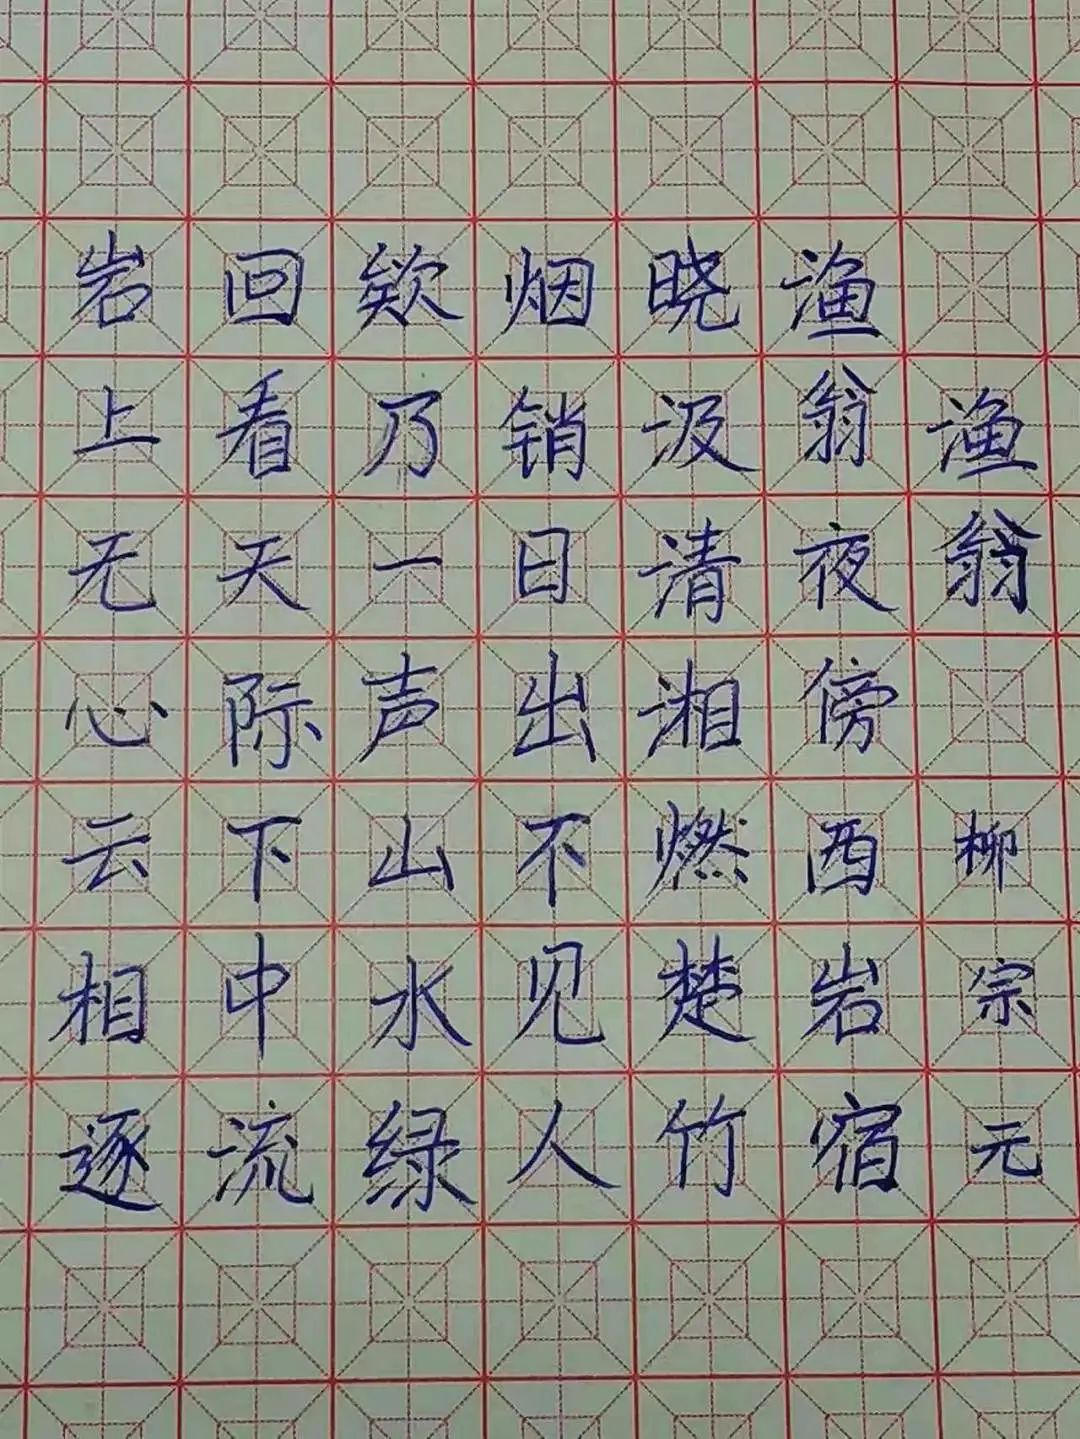 渔翁 柳宗元
渔翁夜傍西岩宿
晓汲清湘燃楚竹
烟销日出不见人
欸乃一声山水绿
回看天际下中流
岩上无心云相逐